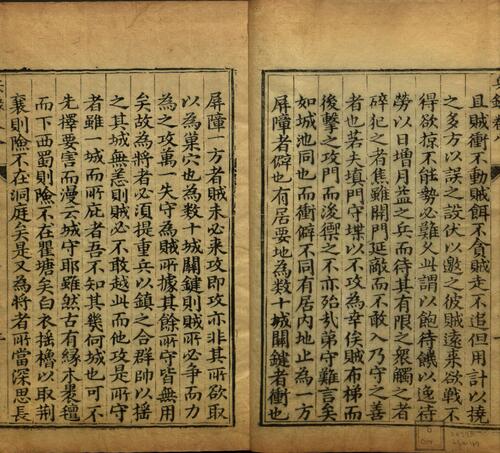 且賊衝不動賊餌不貪賊走不追但用計以撓
之多方以誤之設伏以邀之彼賊遠來欲戰不
得欲掠不能勢必難久此謂以飽待饑以逸待
勞以日増月益之兵而待其有限之衆觸之者
碎犯之者焦雖開門延敵而不敢入乃守之善
者也若夫填門守堞以不攻為幸俟賊布梯而
後擊之攻門而浚禦之不亦殆乎弟守難言矣
如城池同也而衝僻不同有居内地止為一方
屏障者僻也有居要地為数十城關鍵者衝也
屏障一方者賊未必来攻即攻亦非其所欲取
以為巢穴也為数十城關鍵則賊所必争而力
為之攻萬一失守為賊所據其餘所守皆無用
矣故為將者必須提重兵以鎮之合群帥以揺
之其城無恙則賊必不敢越此而他攻是所守
者雖一城而所庇者吾不知其幾何城也可不
先擇要害而漫云城守耶雖然古有緣木裹氊
而下西蜀則險不在瞿塘矣白衣揺櫓以取荆
襄則險不在洞庭矣是又為將者所當深思長